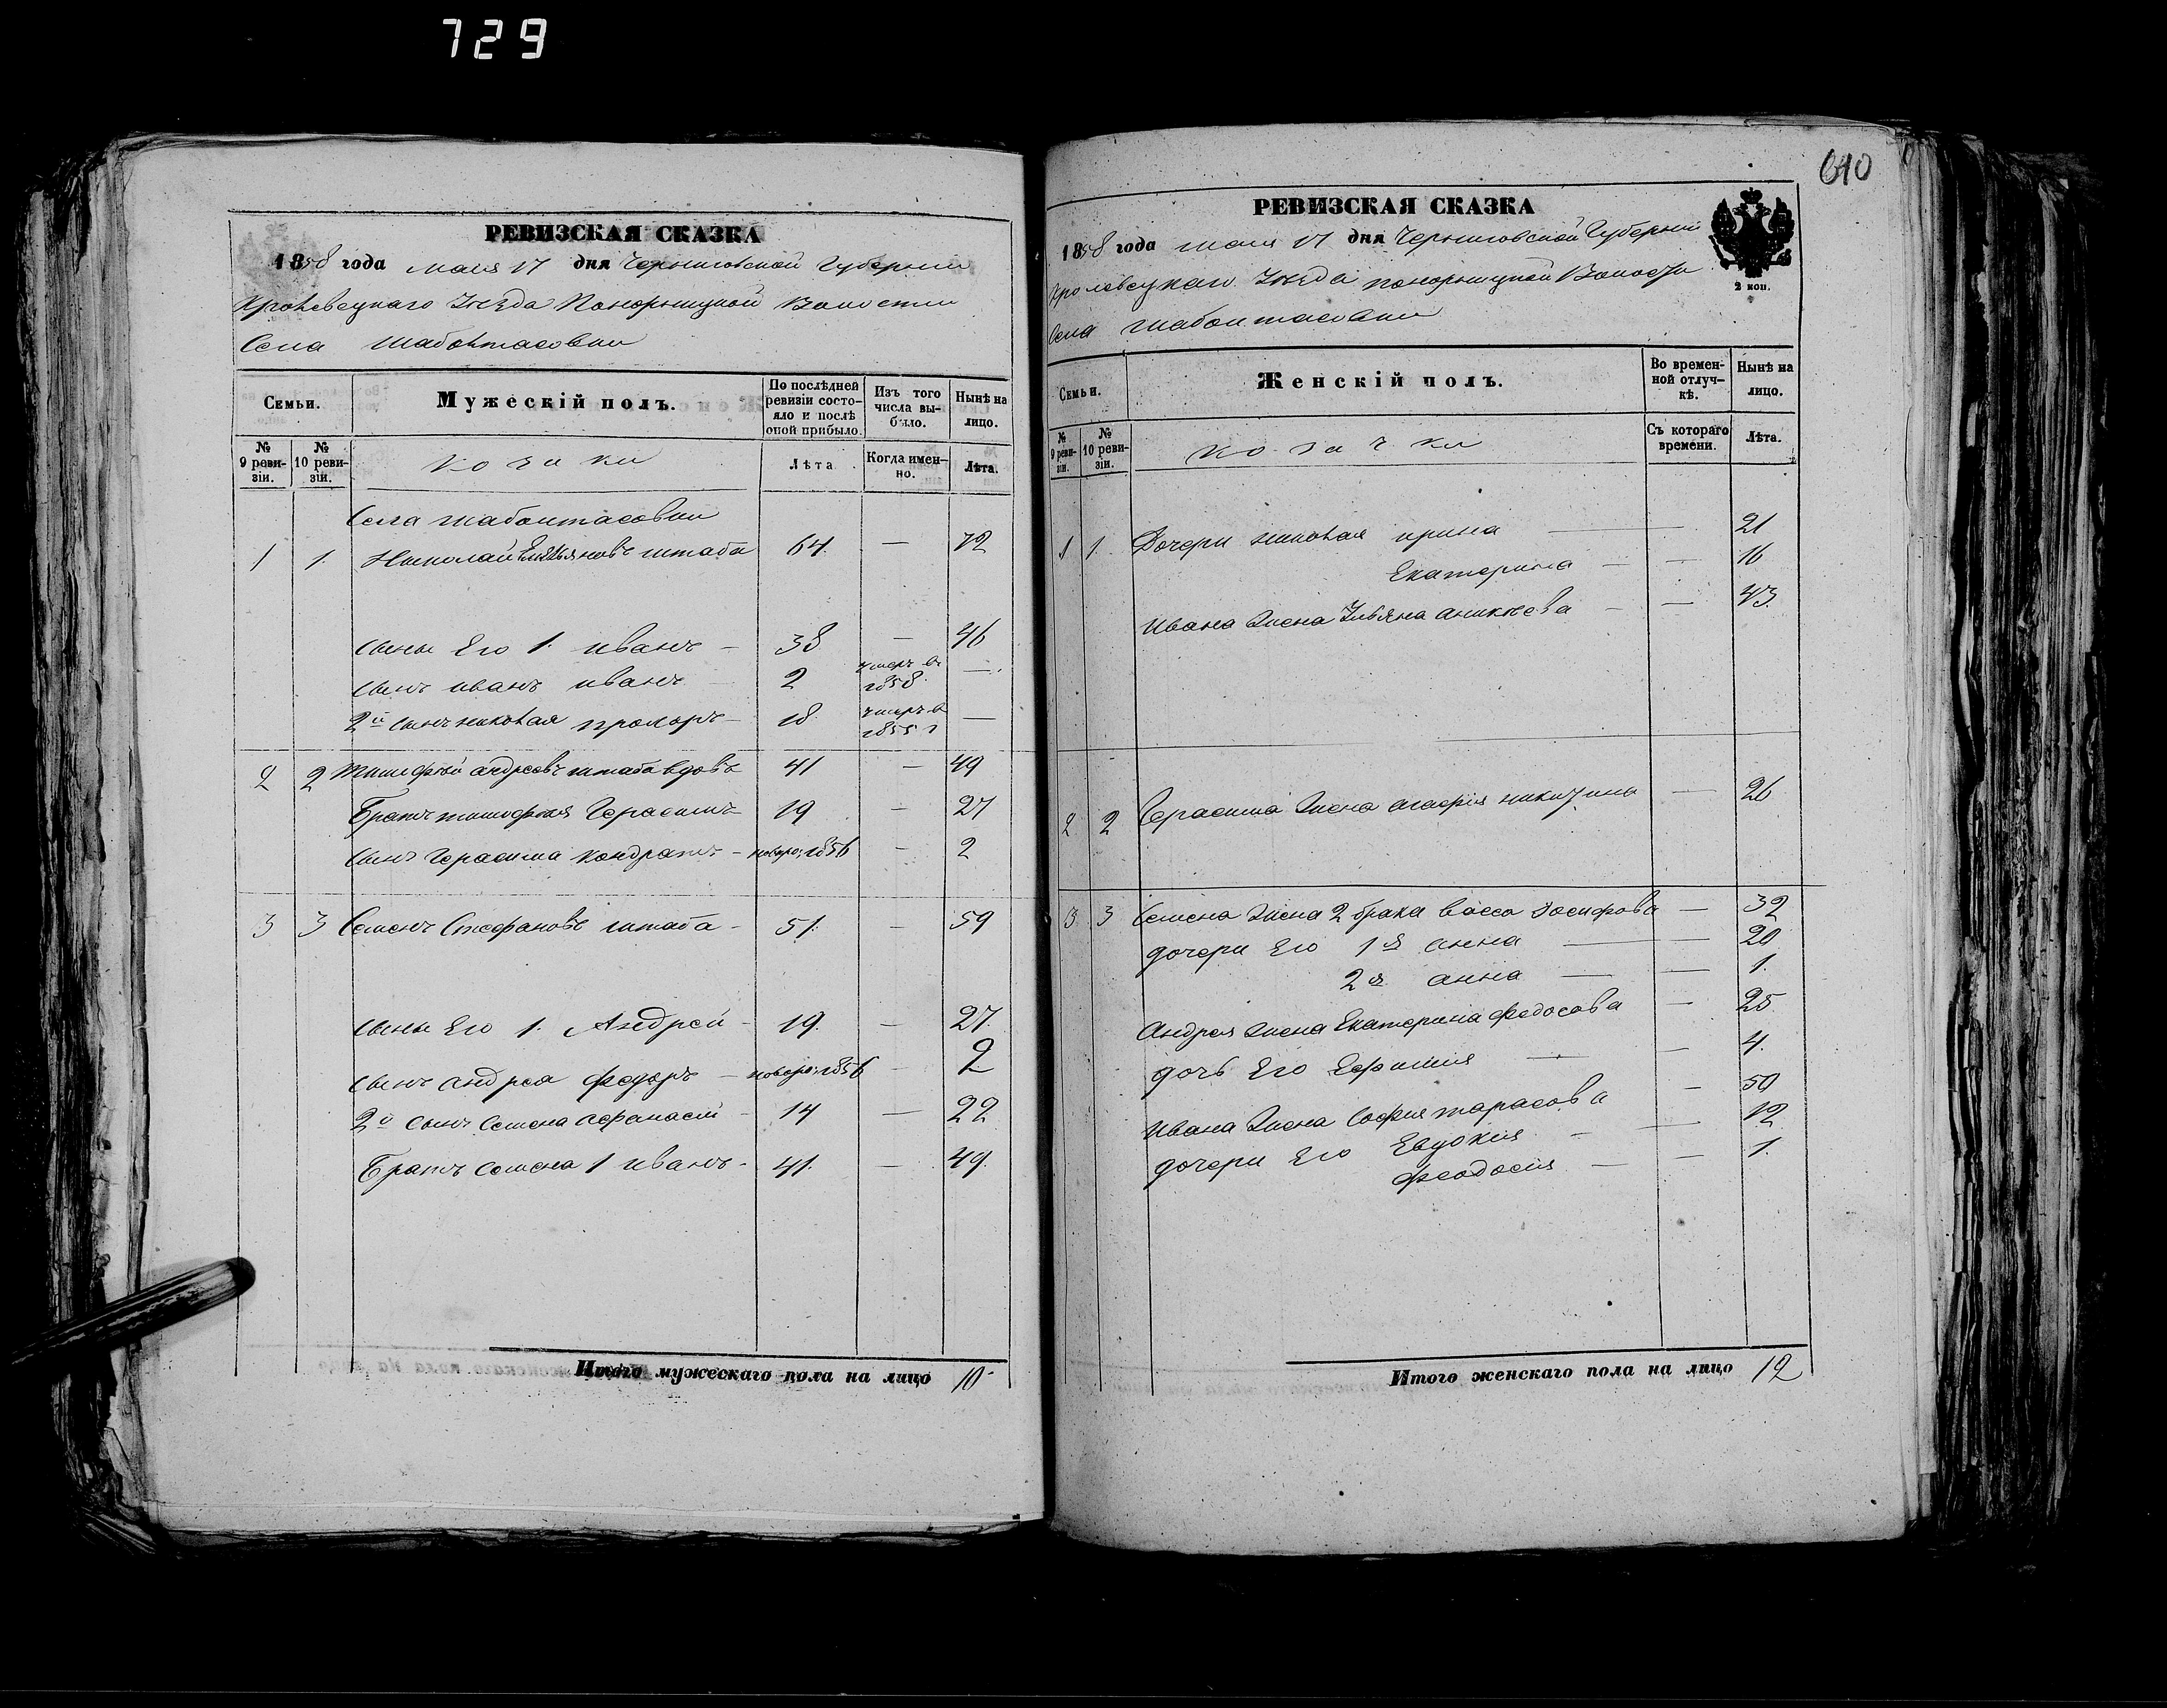 729
РЕВИЗСКАЯ СКАЗКА
1858 года мая 17 дня Черниговской Губерніи
Кролевецкаго Уезда Понорницкой Волости
Села Шабалтасовки
Семьи.
Мужескій полъ.
По послѣдней ревизіи состояло и послѣ оной прибыло.
Изъ того числа выбыло.
Нынѣ на лицо.
№ 9 ревизіи.
№ 10 ревизіи.
козаки
Лѣта
Когда именно.
Лѣта.
Села Шабалтасовки
1 1. Николай штаба 64. — 72
сыны Его 1. иванъ — 38 — 46
сынъ ивана иванъ — 2 умеръ въ 1858. —
2й сынъ николая прохоръ — 18. умеръ в 1855 г —
2 2 тимофей андреевъ штаба вдовъ 41 — 49
Братъ тимофея Герасимъ 19 — 27
сынъ Герасима кондратъ — новоро: 1856 — 2
3 3 Семенъ Стефановъ штаба — 51. — 59
сыны Его 1. Андрей — 19. — 27.
сынъ андрея федоръ — новоро: 1856 — 2
2й сынъ семена афанасій — 14 — 22
Братъ семена 1 иванъ — 41. — 49.
Итого мужескаго пола на лицо 10
640
РЕВИЗСКАЯ СКАЗКА
1858 года мая 17 дня Черниговской Губерніи
Кролевецкаго Уезда понорницкой Волости
2 коп.
Села шабалтасовки
Семьи.
Женскій полъ.
Во временной отлучкѣ.
Нынѣ на лицо.
№ 9 ревизіи.
№ 10 ревизіи.
козачки
Съ котораго времени.
Лѣта.
1 1. Дочери николая ирина — 21
Екатерина — — 16
ивана жена Ульяна аникеева — — 43.
2 2 Герасима жена агафія никитина — 26
3 3 Семена жена 2 брака васса иосифова — 32
дочери Его 1я анна — 20
2я анна — — 1.
Андрея жена Екатерина федосова — 25
дочь Его Ефимия — — 4.
ивана жена София тарасова — 50
дочери Его Евдокия — — 12
феодосия — — 1.
Итого женскаго пола на лицо 12